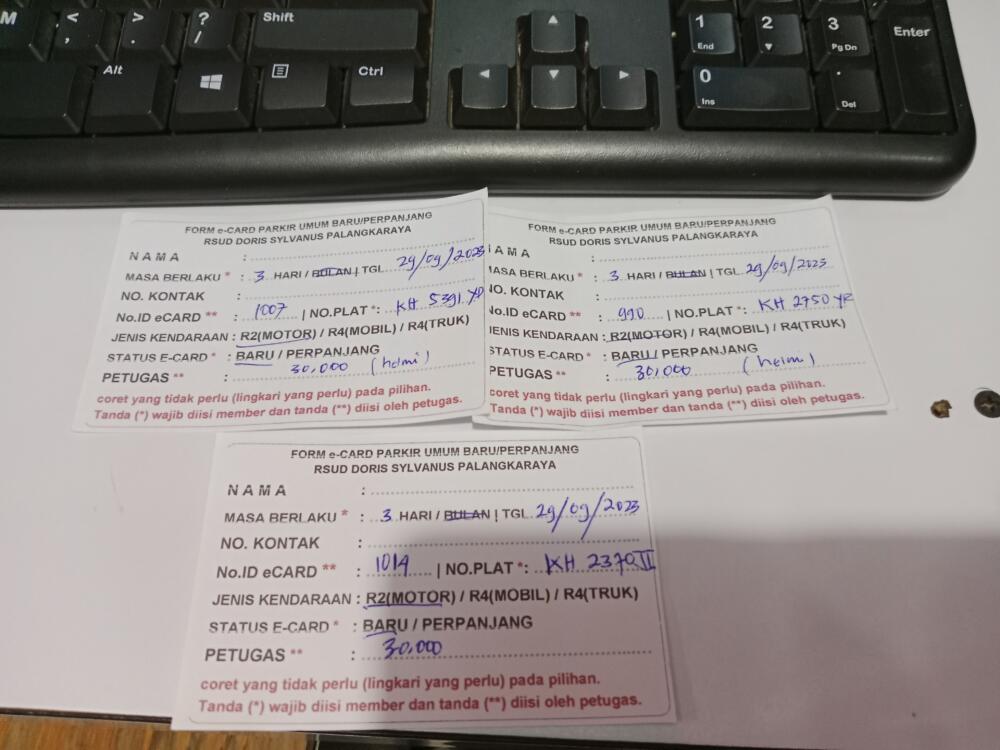 M < , > . ? / Shift
Alt Ctrl
1 End 2 3 Pg Dn Enter
0 Ins . Del
FORM e-CARD PARKIR UMUM BARU/PERPANJANG
RSUD DORIS SYLVANUS PALANGKARAYA
N A M A :
MASA BERLAKU * : 3 HARI / BULAN | TGL 29/09/2023
NO. KONTAK :
No.ID eCARD ** : 1007 | NO.PLAT *: KH 5391 YP
JENIS KENDARAAN : R2(MOTOR) / R4(MOBIL) / R4(TRUK)
STATUS E-CARD * : BARU / PERPANJANG
30,000 (helmi)
PETUGAS ** :
coret yang tidak perlu (lingkari yang perlu) pada pilihan.
Tanda (*) wajib diisi member dan tanda (**) diisi oleh petugas.
FORM e-CARD PARKIR UMUM BARU/PERPANJANG
RSUD DORIS SYLVANUS PALANGKARAYA
AMA :
MASA BERLAKU * : 3 HARI / BULAN | TGL 29/09/2023
NO. KONTAK :
No.ID eCARD ** : 990 | NO.PLAT *: KH 2750 YR
JENIS KENDARAAN : R2(MOTOR) / R4(MOBIL) / R4(TRUK)
STATUS E-CARD * : BARU / PERPANJANG
PETUGAS ** : 30,000 (helm)
coret yang tidak perlu (lingkari yang perlu) pada pilihan.
Tanda (*) wajib diisi member dan tanda (**) diisi oleh petugas.
FORM e-CARD PARKIR UMUM BARU/PERPANJANG
RSUD DORIS SYLVANUS PALANGKARAYA
N A M A :
MASA BERLAKU * : 3 HARI / BULAN | TGL 29/09/2023
NO. KONTAK :
No.ID eCARD ** : 1014 | NO.PLAT *: KH 2370 II
JENIS KENDARAAN : R2(MOTOR) / R4(MOBIL) / R4(TRUK)
STATUS E-CARD * : BARU / PERPANJANG
PETUGAS ** : 30,000
coret yang tidak perlu (lingkari yang perlu) pada pilihan.
Tanda (*) wajib diisi member dan tanda (**) diisi oleh petugas.